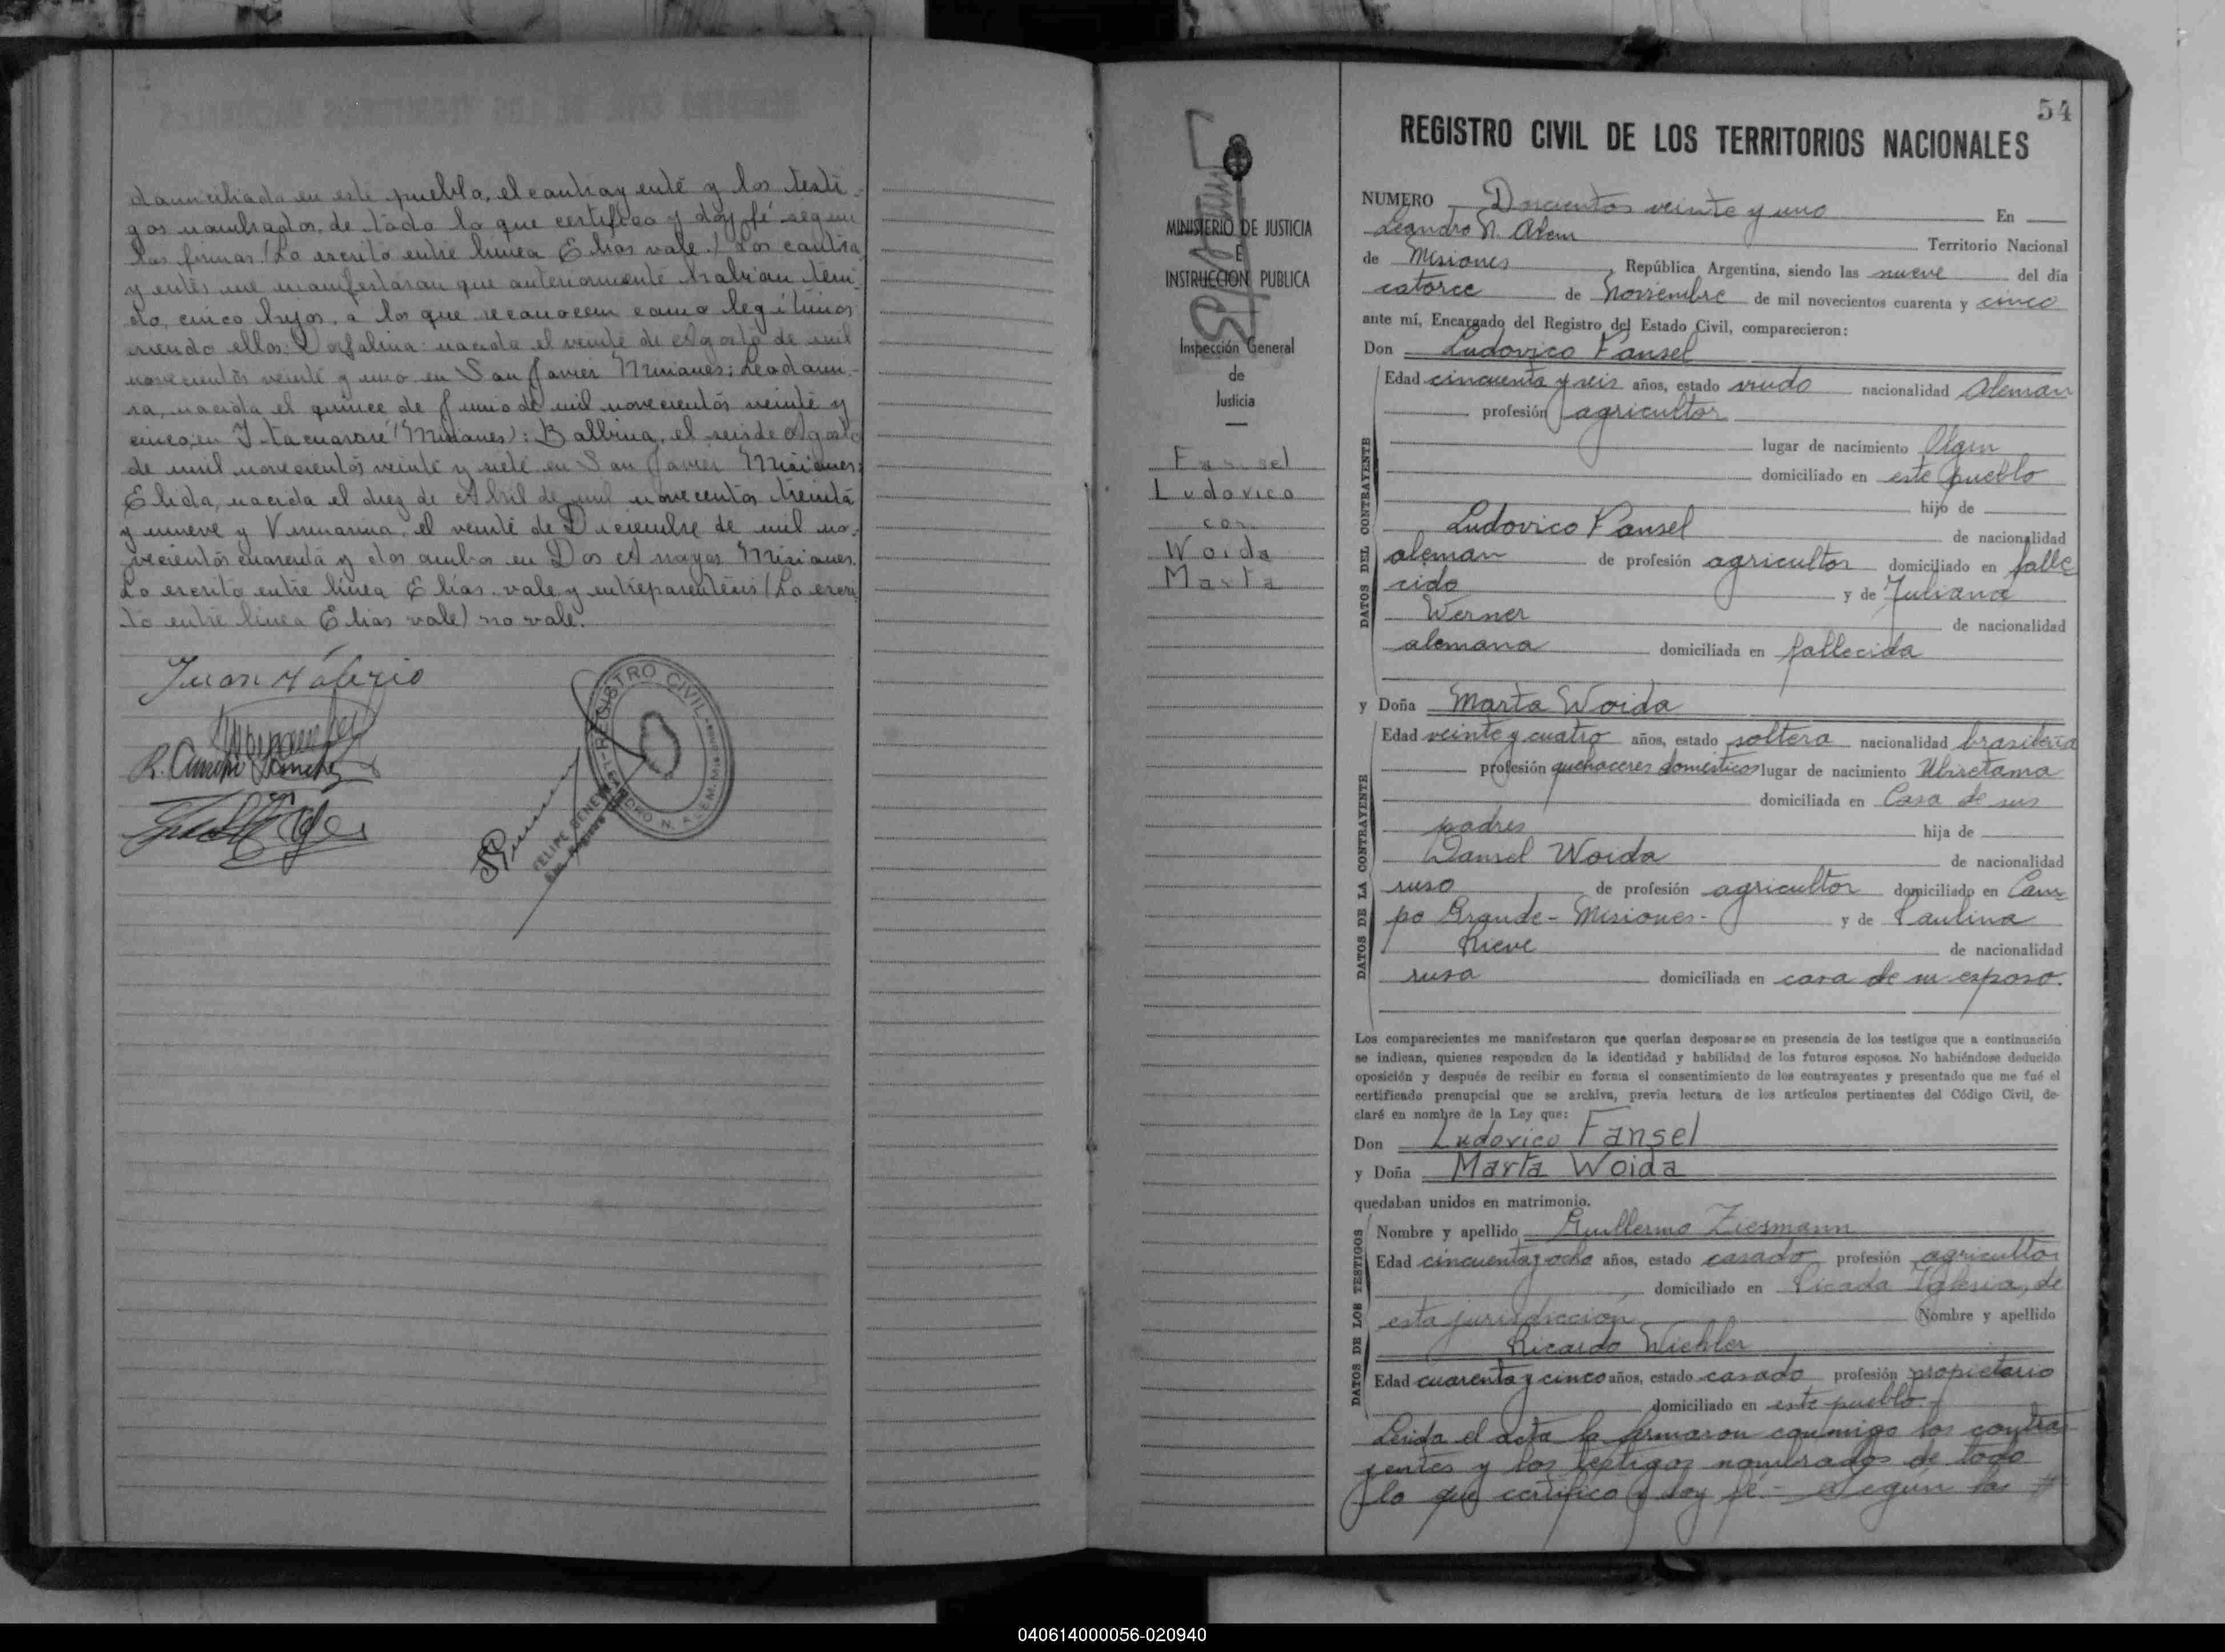 domiciliada en este pueblo, el contrayente y los testi-
gos nombrados, de todo lo que certifico y doy fé según
las firmas (Lo escrito entre linea Elias vale.) Los contra
yentes me manifestaron que anteriormente habian teni-
do, cinco hijos, a los que reconocen como legitimos
siendo ellos: nacida el veinte de Agosto de mil
novecientos veinte y uno en San Javier Misiones;
nacida el quince de Junio de mil novecientos veinte y
cinco, en Itacuararé (Misiones): Balbina, el seis de Agosto
de mil novecientos veinte y siete en San Javier Misiones;
Elida, nacida el diez de Abril de mil novecentos treinta
y nueve y el veinte de Diciembre de mil no-
vecientos cuarenta y dos ambos en Dos Arroyos Misiones.
Lo escrito entre línea Elías. vale y entreparentesis (Lo escri-
to entre línea Elias vale) no vale.
Juan Valerio
REGISTRO CIVIL
LEANDRO N. ALEM
FELIPE
MINISTERIO DE JUSTICIA
E
INSTRUCCION PUBLICA
Inspección General
de
Justicia
Fansel
Ludovico
con
Woida
Marta
54
REGISTRO CIVIL DE LOS TERRITORIOS NACIONALES
NUMERO Doscientos veinte y uno En
Leandro N. Alem Territorio Nacional
de Misiones, República Argentina, siendo las nueve del día
catorce de Noviembre de mil novecientos cuarenta y cinco
ante mí, Encargado del Registro del Estado Civil, comparecieron:
Don Ludovico Fansel
DATOS DEL CONTRAYENTE
Edad cincuenta y seis años, estado viudo nacionalidad Aleman
profesión agricultor
lugar de nacimiento
domiciliado en este pueblo
hijo de
Ludovico Fansel de nacionalidad
aleman de profesión agricultor domiciliado en falle
cido y de Juliana
Werner de nacionalidad
alemana domiciliada en fallecida
y Doña Marta Woida
DATOS DE LA CONTRAYENTE
Edad veinte y cuatro años, estado soltera nacionalidad brasileña
profesión quehaceres domesticos lugar de nacimiento Ubiretama
domiciliada en Casa de sus
padres hija de
Daniel Woida de nacionalidad
ruso de profesión agricultor domiciliado en Cam-
po Grande - Misiones - y de Paulina
Rieve de nacionalidad
rusa domiciliada en casa de su esposo.
Los comparecientes me manifestaron que querían desposarse en presencia de los testigos que a continuación
se indican, quienes responden de la identidad y habilidad de los futuros esposos. No habiéndose deducido
oposición y después de recibir en forma el consentimiento de los contrayentes y presentado que me fué el
certificado prenupcial que se archiva, previa lectura de los artículos pertinentes del Código Civil, de-
claré en nombre de la Ley que:
Don Ludovico Fansel
y Doña Marta Woida
quedaban unidos en matrimonio.
DATOS DE LOS TESTIGOS
Nombre y apellido Guillermo Ziesmann
Edad cincuenta y ocho años, estado casado profesión agricultor
domiciliado en Picada Iglesia, de
esta jurisdiccion Nombre y apellido
Ricardo Wichler
Edad cuarenta y cinco años, estado casado profesión propietario
domiciliado en este pueblo.
Leida el acta la firmaron conmigo los contra
yentes y los testigos nombrados de todo
lo que certifico y doy fé. - según las #
040614000056-020940